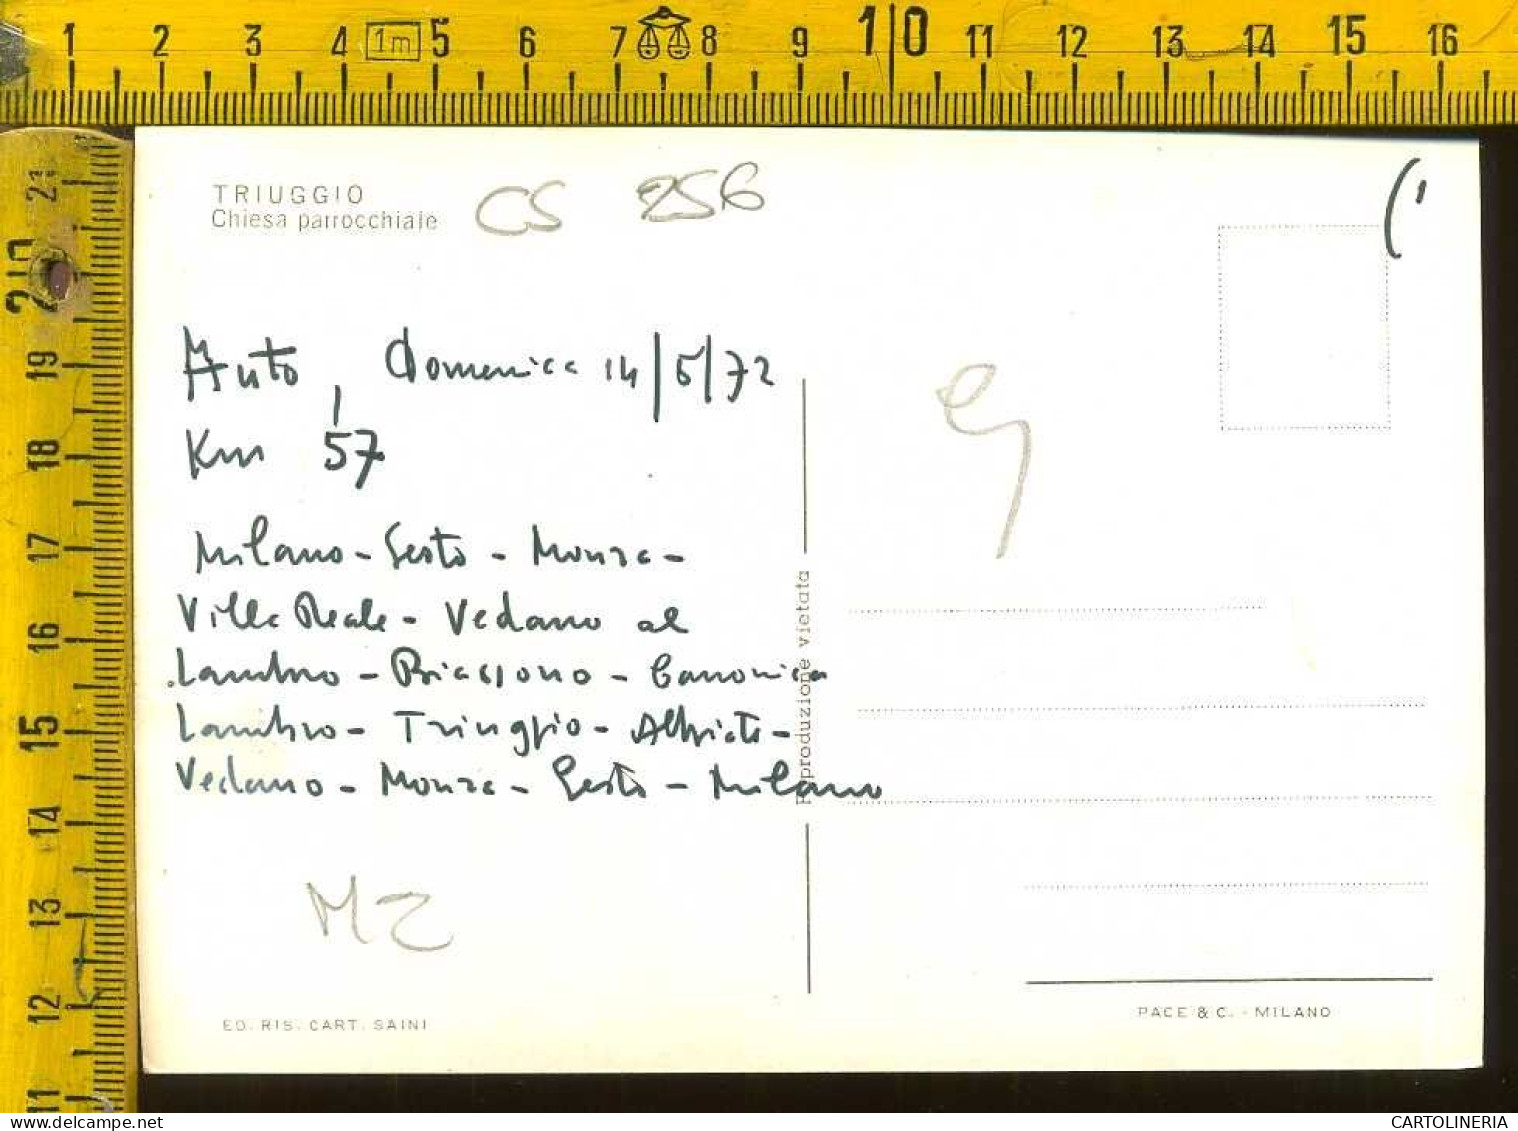 1 2 3 4 1m 5 6 7 8 9 10 11 12 13 14 15 16
21
20
19
18
17
16
15
14
13
12
11
TRIUGGIO
Chiesa parrocchiale
CS 256
Auto, Domenica 14/5/72
Km 57
Milano - Sesto - Monza -
Villa Reale - Vedano al
Lambro - Biassono - Canonica
Lambro - Triuggio - Albiate -
Vedano - Monza - Sesto - Milano
MZ
Riproduzione vietata
ED. RIS. CART. SAINI
PACE & C. - MILANO
www.delcampe.net
CARTOLINERIA